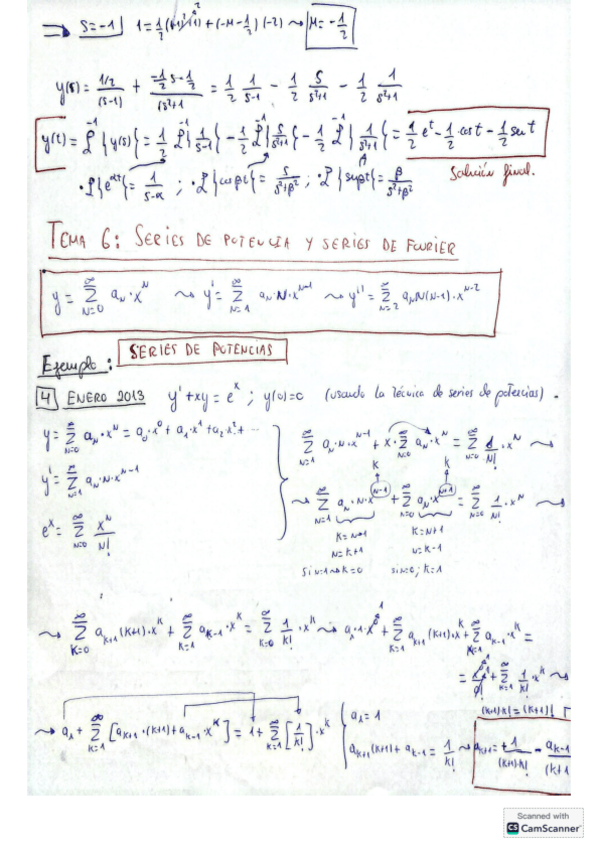 ⇒ s=-1 1=1/2(s-1)²(1)+(-M-1/2)(-2) ⇝ M=-1/2
y(s)= 1/2/(s-1) + -1/2 s-1/2/(s²+1) = 1/2 1/s-1 - 1/2 s/s²+1 - 1/2 1/s²+1
y(t)= ℒ⁻¹{y(s)}= 1/2 ℒ⁻¹{1/s-1} - 1/2 ℒ⁻¹{s/s²+1} - 1/2 ℒ⁻¹{1/s²+1} = 1/2 e^t - 1/2 cost - 1/2 sent
Solución final.
·ℒ{e^αt}= 1/s-α ; ·ℒ{cosβt}= s/s²+β² ; ·ℒ{senβt}= β/s²+β²
TEMA 6: SERIES DE POTENCIA Y SERIES DE FOURIER
y= ∞Σn=0 an·x^n ⇝ y'= ∞Σn=1 an·n·x^n-1 ⇝ y''= ∞Σn=2 an n(n-1)·x^n-2
Ejemplo: SERIES DE POTENCIAS
4 ENERO 2013 y'+xy=e^x ; y(0)=0 (usando la técnica de series de potencias).
y= ∞Σn=0 an·x^n = a0·x^0+a1·x^1+a2·x²+...
∞Σn=1 an·n·x^n-1 + x·∞Σn=0 an·x^n = ∞Σn=0 1/n!·x^n ⇝
y'= ∞Σn=1 an·n·x^n-1
k k
⇝ ∞Σn=1 an·n·x^n-1 + ∞Σn=0 an·x^n+1 = ∞Σn=0 1/n!·x^n ⇝
e^x= ∞Σn=0 x^n/n!
k=n-1 k=n+1
n=k+1 n=k-1
si n=1⇝k=0 si n=0; k=1
⇝ ∞Σk=0 ak+1(k+1)·x^k + ∞Σk=1 ak-1·x^k = ∞Σk=0 1/k!·x^k ⇝ a1·1·x^0 + ∞Σk=1 ak+1(k+1)·x^k + ∞Σk=1 ak-1·x^k =
= x^0/0! + ∞Σk=1 1/k!·x^k ⇝
(k+1)k!=(k+1)!
⇝ a1+ ∞Σk=1 [ak+1·(k+1)+ak-1·x^k] = 1+ ∞Σk=1 [1/k!]·x^k
a1=1
ak+1(k+1)+ak-1= 1/k! ⇝ ak+1= +1/(k+1)k! - ak-1/(k+1
Scanned with
CS CamScanner